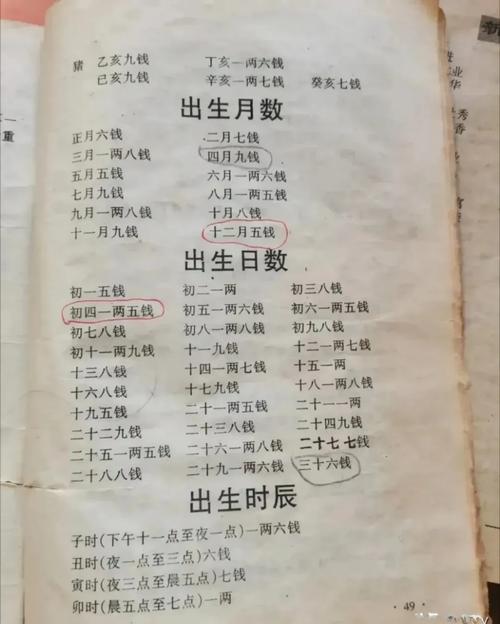 猪 乙亥九钱 丁亥一两六钱
己亥九钱 辛亥一两七钱 癸亥七钱
出生月数
正月六钱 二月七钱
三月一两八钱 四月九钱
五月五钱 六月一两六钱
七月九钱 八月一两五钱
九月一两八钱 十月八钱
十一月九钱 十二月五钱
出生日数
初一五钱 初二一两 初三八钱
初四一两五钱 初五一两六钱 初六一两五钱
初七八钱 初八一两八钱 初九八钱
初十一两九钱 十一九钱 十二一两七钱
十三八钱 十四一两七钱 十五一两
十六八钱 十七九钱 十八一两八钱
十九五钱 二十一两五钱 二十一一两
二十二九钱 二十三八钱 二十四九钱
二十五一两五钱 二十六一两八钱 二十七七钱
二十八八钱 二十九一两六钱 三十六钱
出生时辰
子时(下午十一点至夜一点)一两六钱
丑时(夜一点至三点)六钱
寅时(夜三点至晨五点)七钱
卯时(晨五点至七点)一两
·49·
重
业
华
秀
香